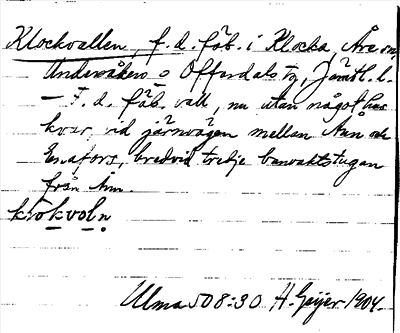 Klockvallen, f. d. fäb. i Klocka, Åre sn,
Undersåkers o Offerdals tg, Jämtl. l.
— F. d. fäb. vall, nu utan något hus
kvar, vid järnvägen mellan Ånn och
Enafors, bredvid tredje banvaktstugan
från Ånn.
klòkvol̥n
Ulma 508:30 H. Geijer 1904.